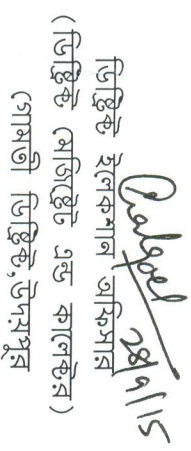 28/9/15
ডিষ্ট্রিক্ট ইলেকশান অফিসার
(ডিষ্ট্রিক্ট মেজিষ্ট্রেট এন্ড কালেক্টর)
গোমতী ডিষ্ট্রিক্ট, উদয়পুর